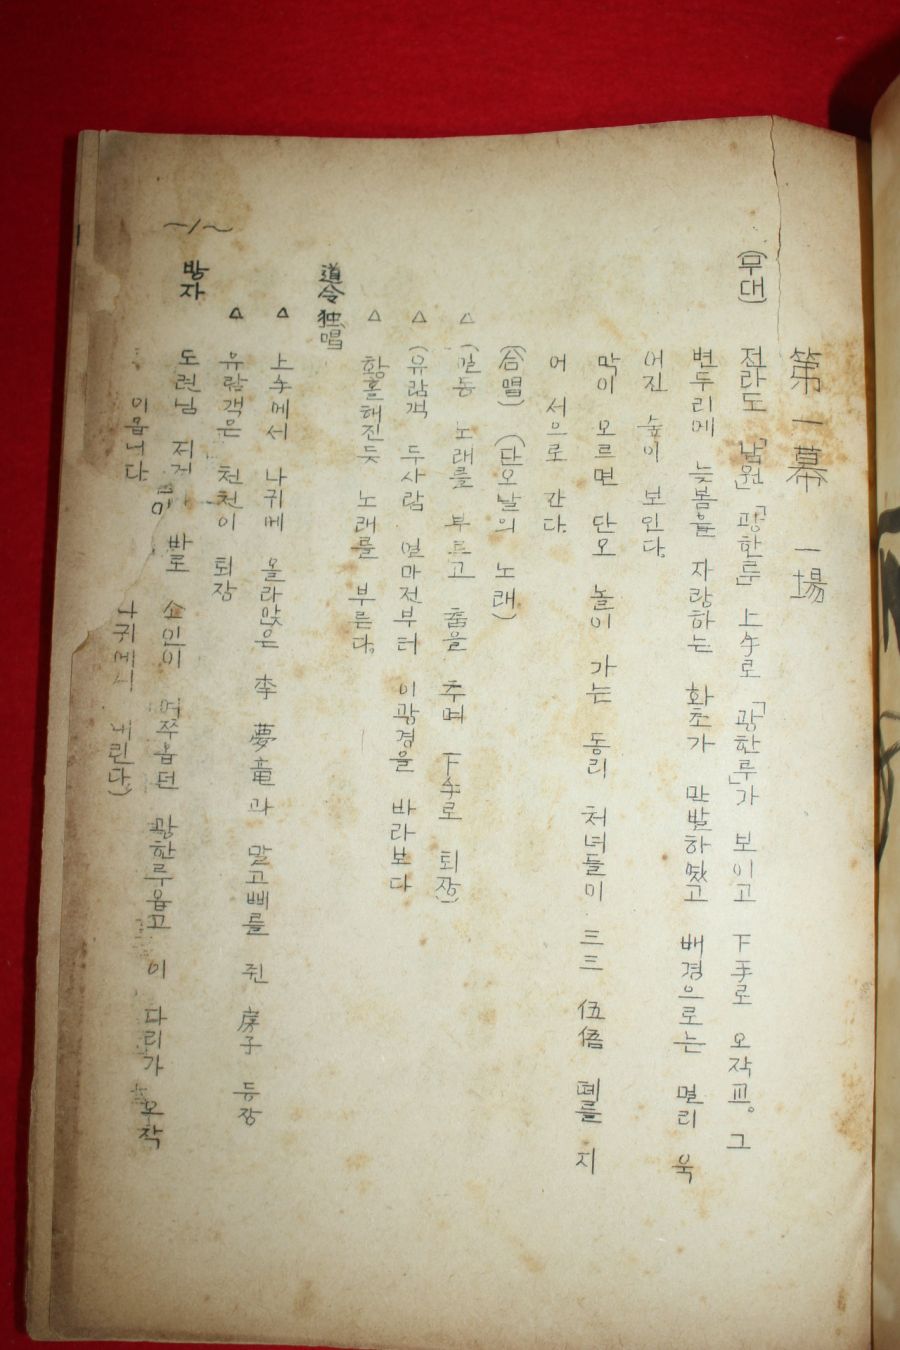 第一幕 一場
(무대) 전라도 「남원」「광한루」 上手로 「광한루」가 보이고 下手로 오작교。 그
변두리에 늦봄을 자랑하는 화초가 만발하였고 배경으로는 멀리 욱
어진 숲이 보인다。
막이 오르면 단오 놀이 가는 동리 처녀들이 三三 伍伍 떼를 지
어 서으로 간다。
(合唱) (단오날의 노래)
△ (일동 노래를 부르고 춤을 추며 下手로 퇴장)
△ (유람객 두사람 얼마전부터 이광경을 바라보다
△ 황홀해진듯 노래를 부른다。
道令 独唱
△ 上手에서 나귀에 올라앉은 李 夢竜과 말고삐를 쥔 房子 등장
△ 유람객은 천천이 퇴장
방자 도련님 저거 이 바로 소인이 여쭈옵던 광한루옵고 이 다리가 오작
이옵니다。 나귀에서 내린다。)
~1~